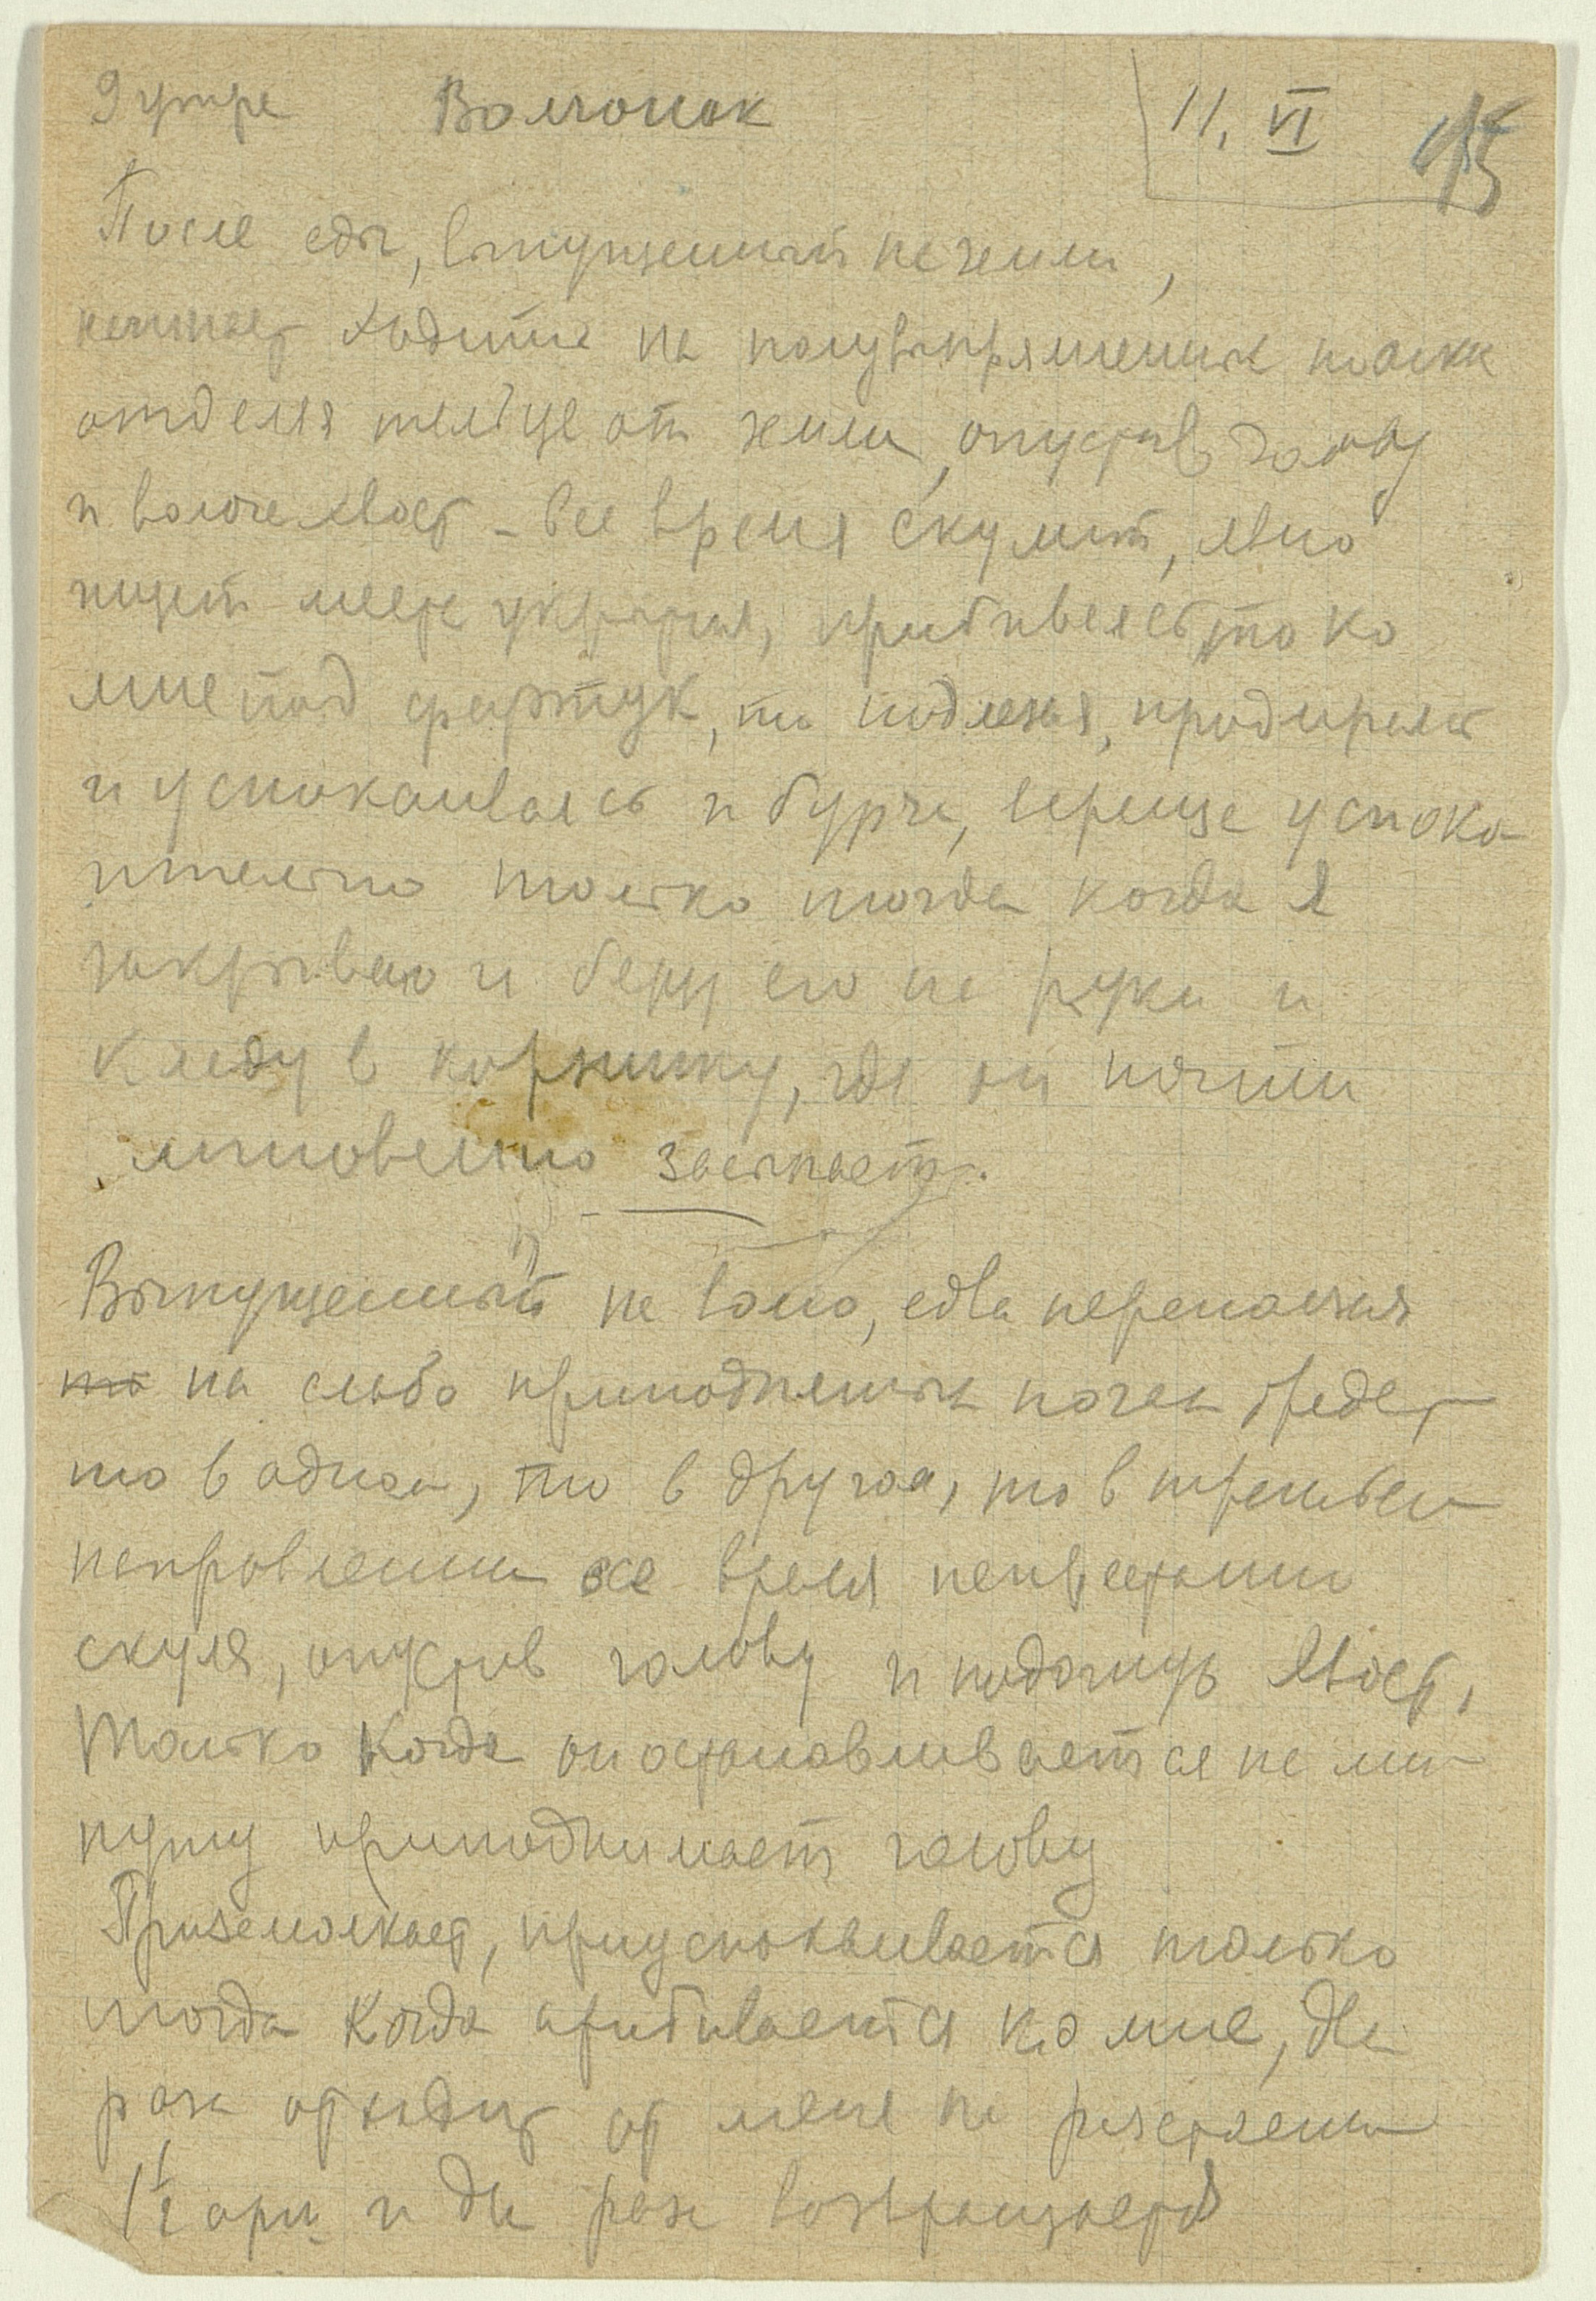 9 утра Волчонок 11. VI 15
После еды, выпущенный на земли,
начинает ходить на полувыпрямленных ногах
отделяя тельце от земли, опустив голову
и волоча хвост – все время скулит, явно
ищет места укрытия, прибиваясь то ко
мне под фартук, то подлезая,
и успокаиваясь и бурча, успоко-
ительно только тогда когда я
закрываю и беру его на руки и
кладу в корзинку, где он почти
мгновенно засыпает.
Выпущенный на волю, едва переползая
то на слабо приподнятых ногах бредет
то в одном, то в другом, то в третьем
направлении все время непрестанно
скуля, опустив голову и подогнув хвост,
Только когда он останавливается на ми-
нуту приподнимает голову
Призамолкает, приуспокаивается только
тогда когда прибивается ко мне, два
раза отходит от меня на расстоянии
1½ арш. и два раза возвращается